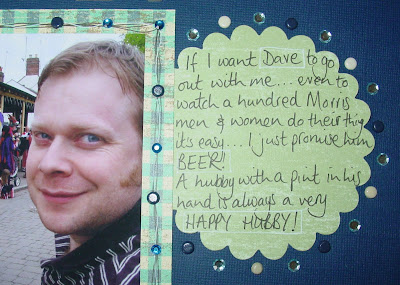 If I want Dave to go
out with me.... even to
watch a hundred Morris
men & women do their thing
its easy.... I just promise him
BEER!!
A hubby with a pint in his
hand is always a very
HAPPY HUBBY!